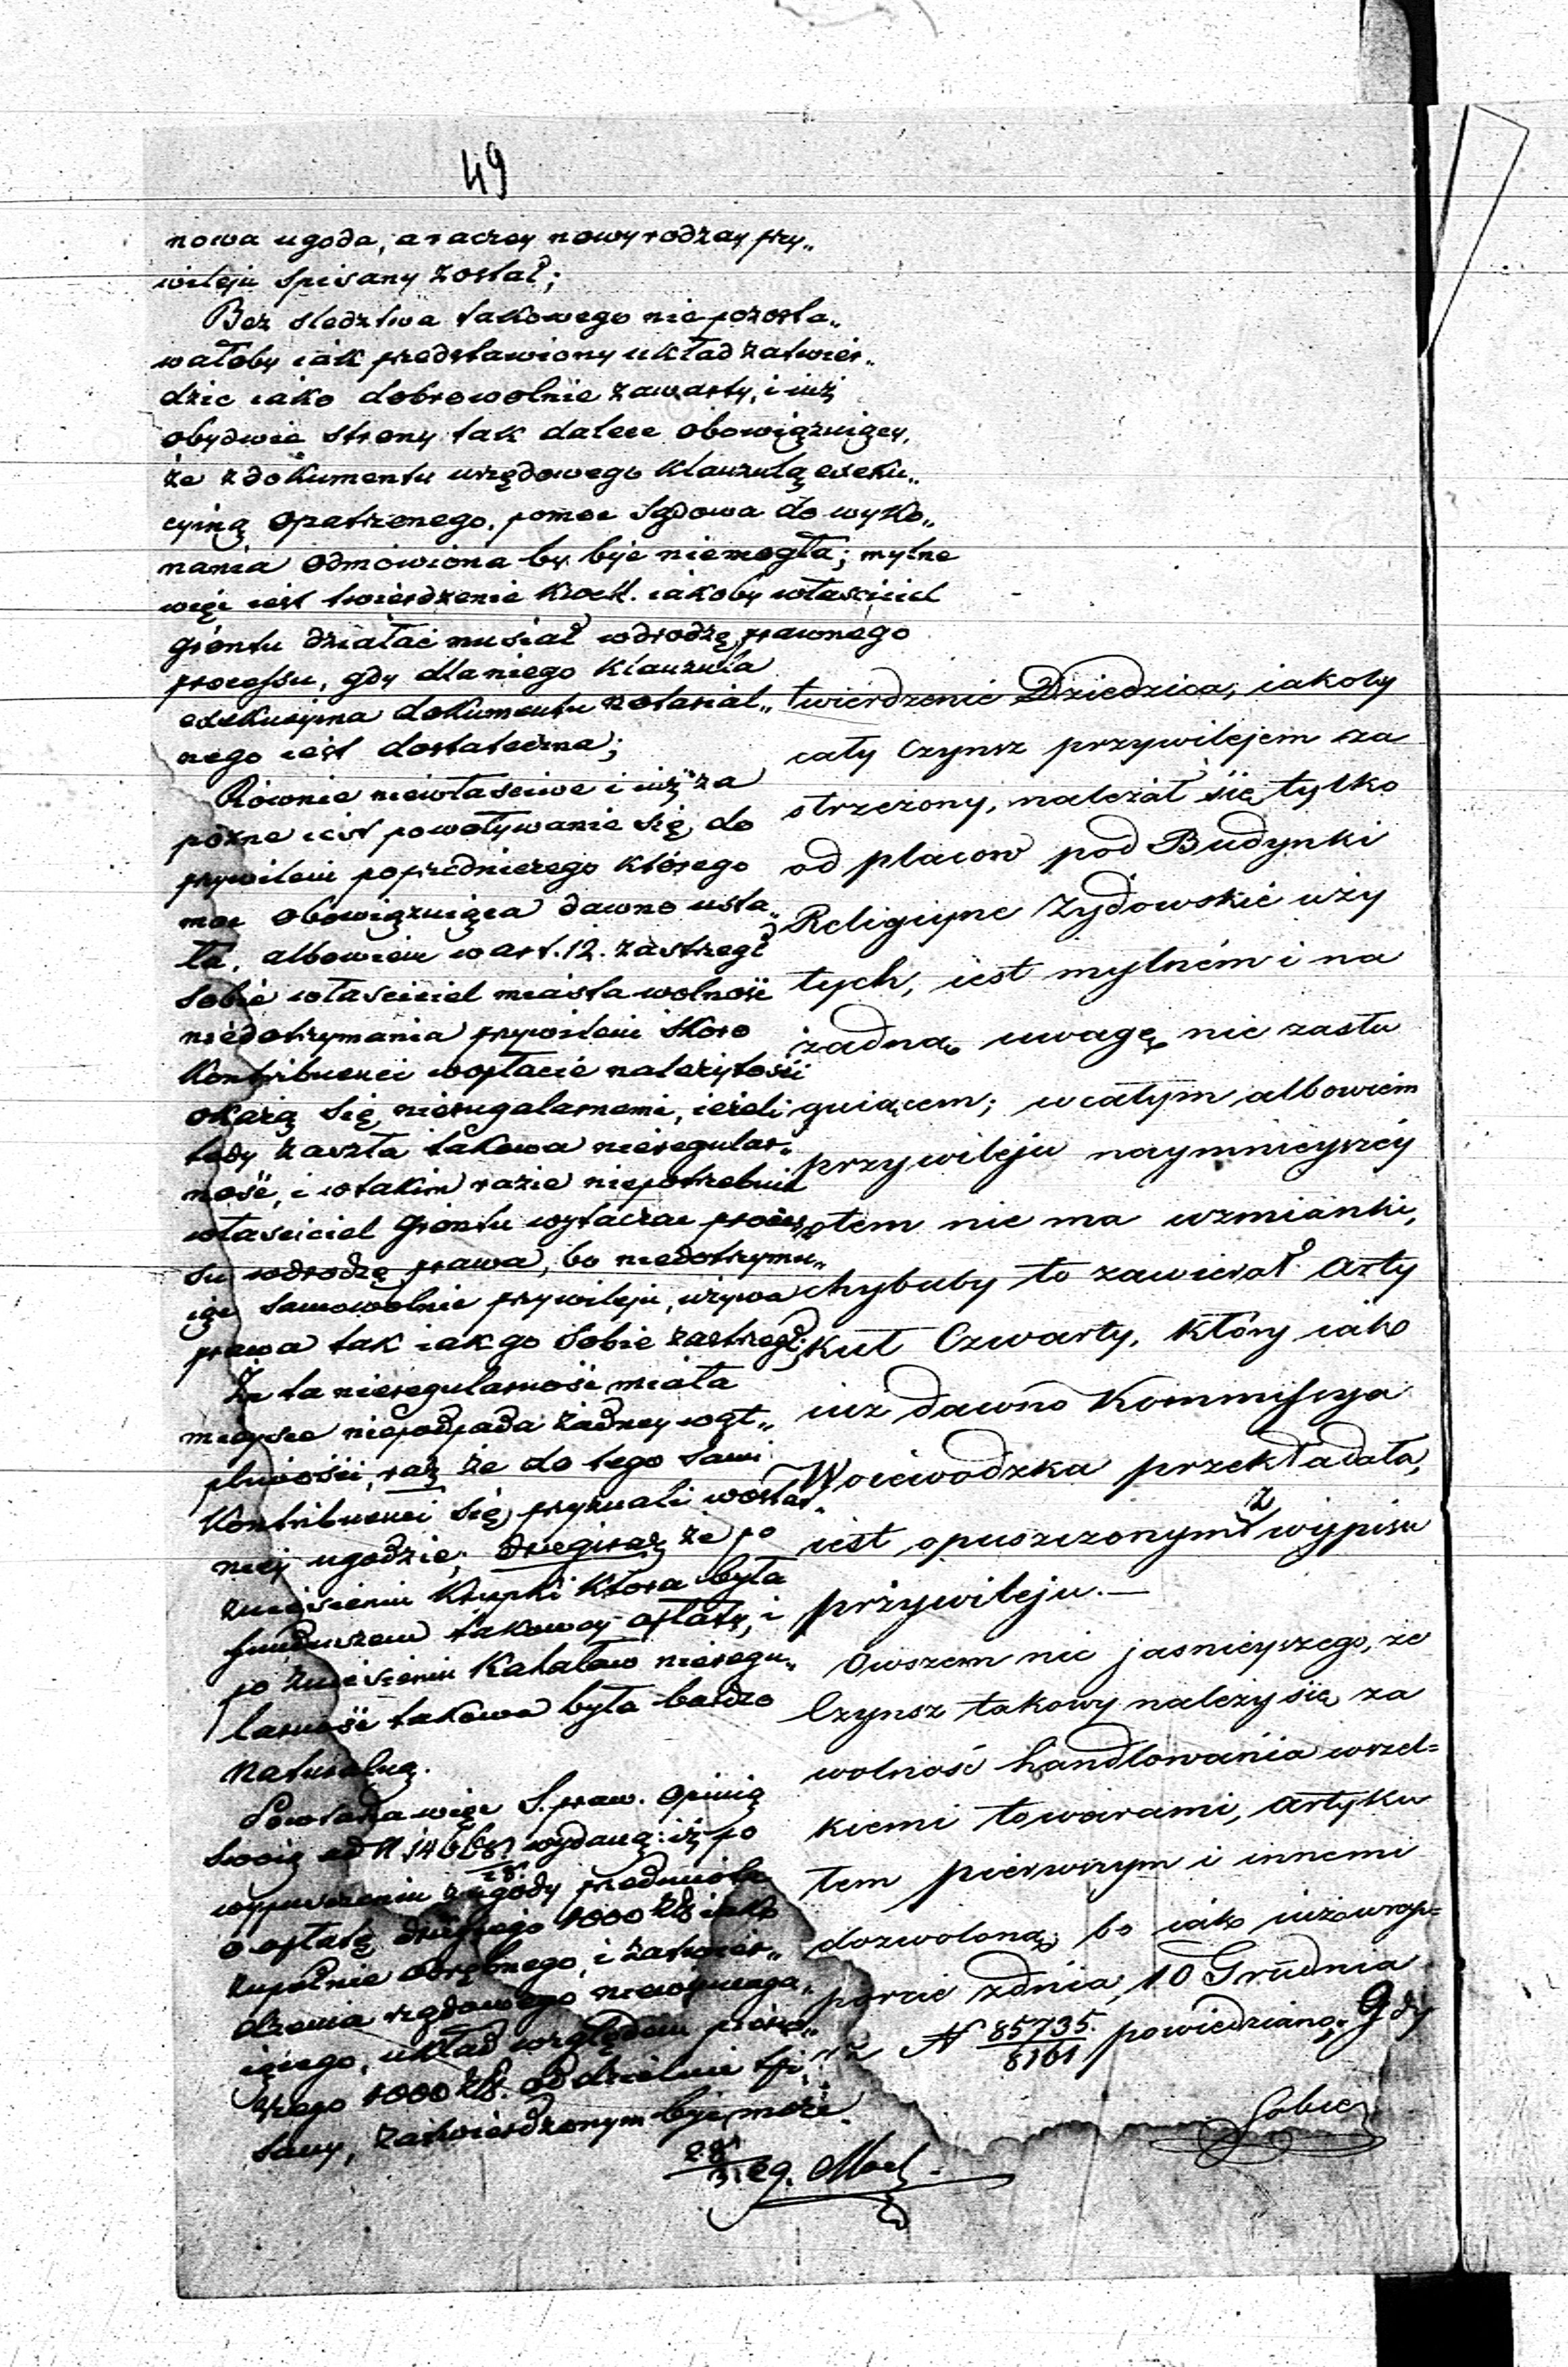 49
nowa ugoda, a raczey nowy rodzay przy„
wileju spisany został;
Bez sledztwa takowego nie pozosta„
wałoby iak przedstawiony układ zatwier„
dzic iako dobrowolnie zawarty, i iuż
obydwie strony tak dalece obowiązuiący,
że z dokumentu urzędowego klauzulą exeku„
cyiną opatrzonego, pomoc sądowa do wyko„
nania odmowiona by byc niemogła; mylne
więc iest twierdzenie iakoby własciciel
gruntu działać musiał w drodze prawnego
processu, gdy dla niego klauzula
exekucyina dokumentu notarial„
nego iest dostateczna;
Rownie niewłasciwe i iuż za
pozne iest powoływanie się do
przywileiu poprzedniczego którego
moc obowiązuiąca dawno usta„
ła, albowiem w art. 12. zastrzegł
sobie własciciel miasta wolność
niedotrzymania przywileiu skoro
Kontribuenci w opłacie należytości
okażą się nieregularnemi, ieżeli
tedy zaszła takowa nieregular„
ność, i w takim razie niepotrzebuie
własciciel gruntu wytaczac proces„
su w drodze prawa, bo niedotrzymu„
iąc samowolnie przywileju, używa
prawa tak iak go sobie zastrzegł;
Że ta nieregularność miała
mieysce niepodpada żadney wąt„
pliwości, raz że do tego sami
Kontribuenci się przyznali w ostat„
niej ugodzie, drugi raz że po
zniesieniu Krupki która była
funduszem takowey opłaty, i
po zniesieniu Kahałow nieregu„
larność takowa była bardzo
naturalną.
Powtarza więc S. praw. opinią
swoią ad N 14668 wydaną: iż po
wypuszczeniu z ugody przedmiotu
o opłatę drugiego 1000 zł iako
zupełnie odrębnego, i zatwier„
dzenia rządowego niewymaga„
iącego, układ względem pierw„
szego 1000 zł. oddzielnie spi„
sany, zatwierdzonym byc może.
twierdzenie Dziedzica, iakoby
cały Czynsz przywilejem za
strzeżony, należał się tylko
od placow pod Budynki
Religiyne Żydowskie uży
tych, iest mylném i na
żadną uwagę nie zasłu
guiącem; w całym albowiem
przywileju naymnieyszéy
o tem nie ma wzmianki,
chybaby to zawierał Arty
kuł Czwarty, który iako
iuż dawno Kommissya
Woiewodzka przekładała,
iest opuszczonym z wypisu
przywileju.—
Owszem nic jasnieyszego, że
Czynsz takowy należy się za
wolność handlowania wszel=
kiemi towarami, artyku
łem pierwszym i innemi
dozwoloną, bo iako iuż w rap=
porcie z dnia 10 Grudnia
N 85735/8161 powiedziano, Gdy
sobie